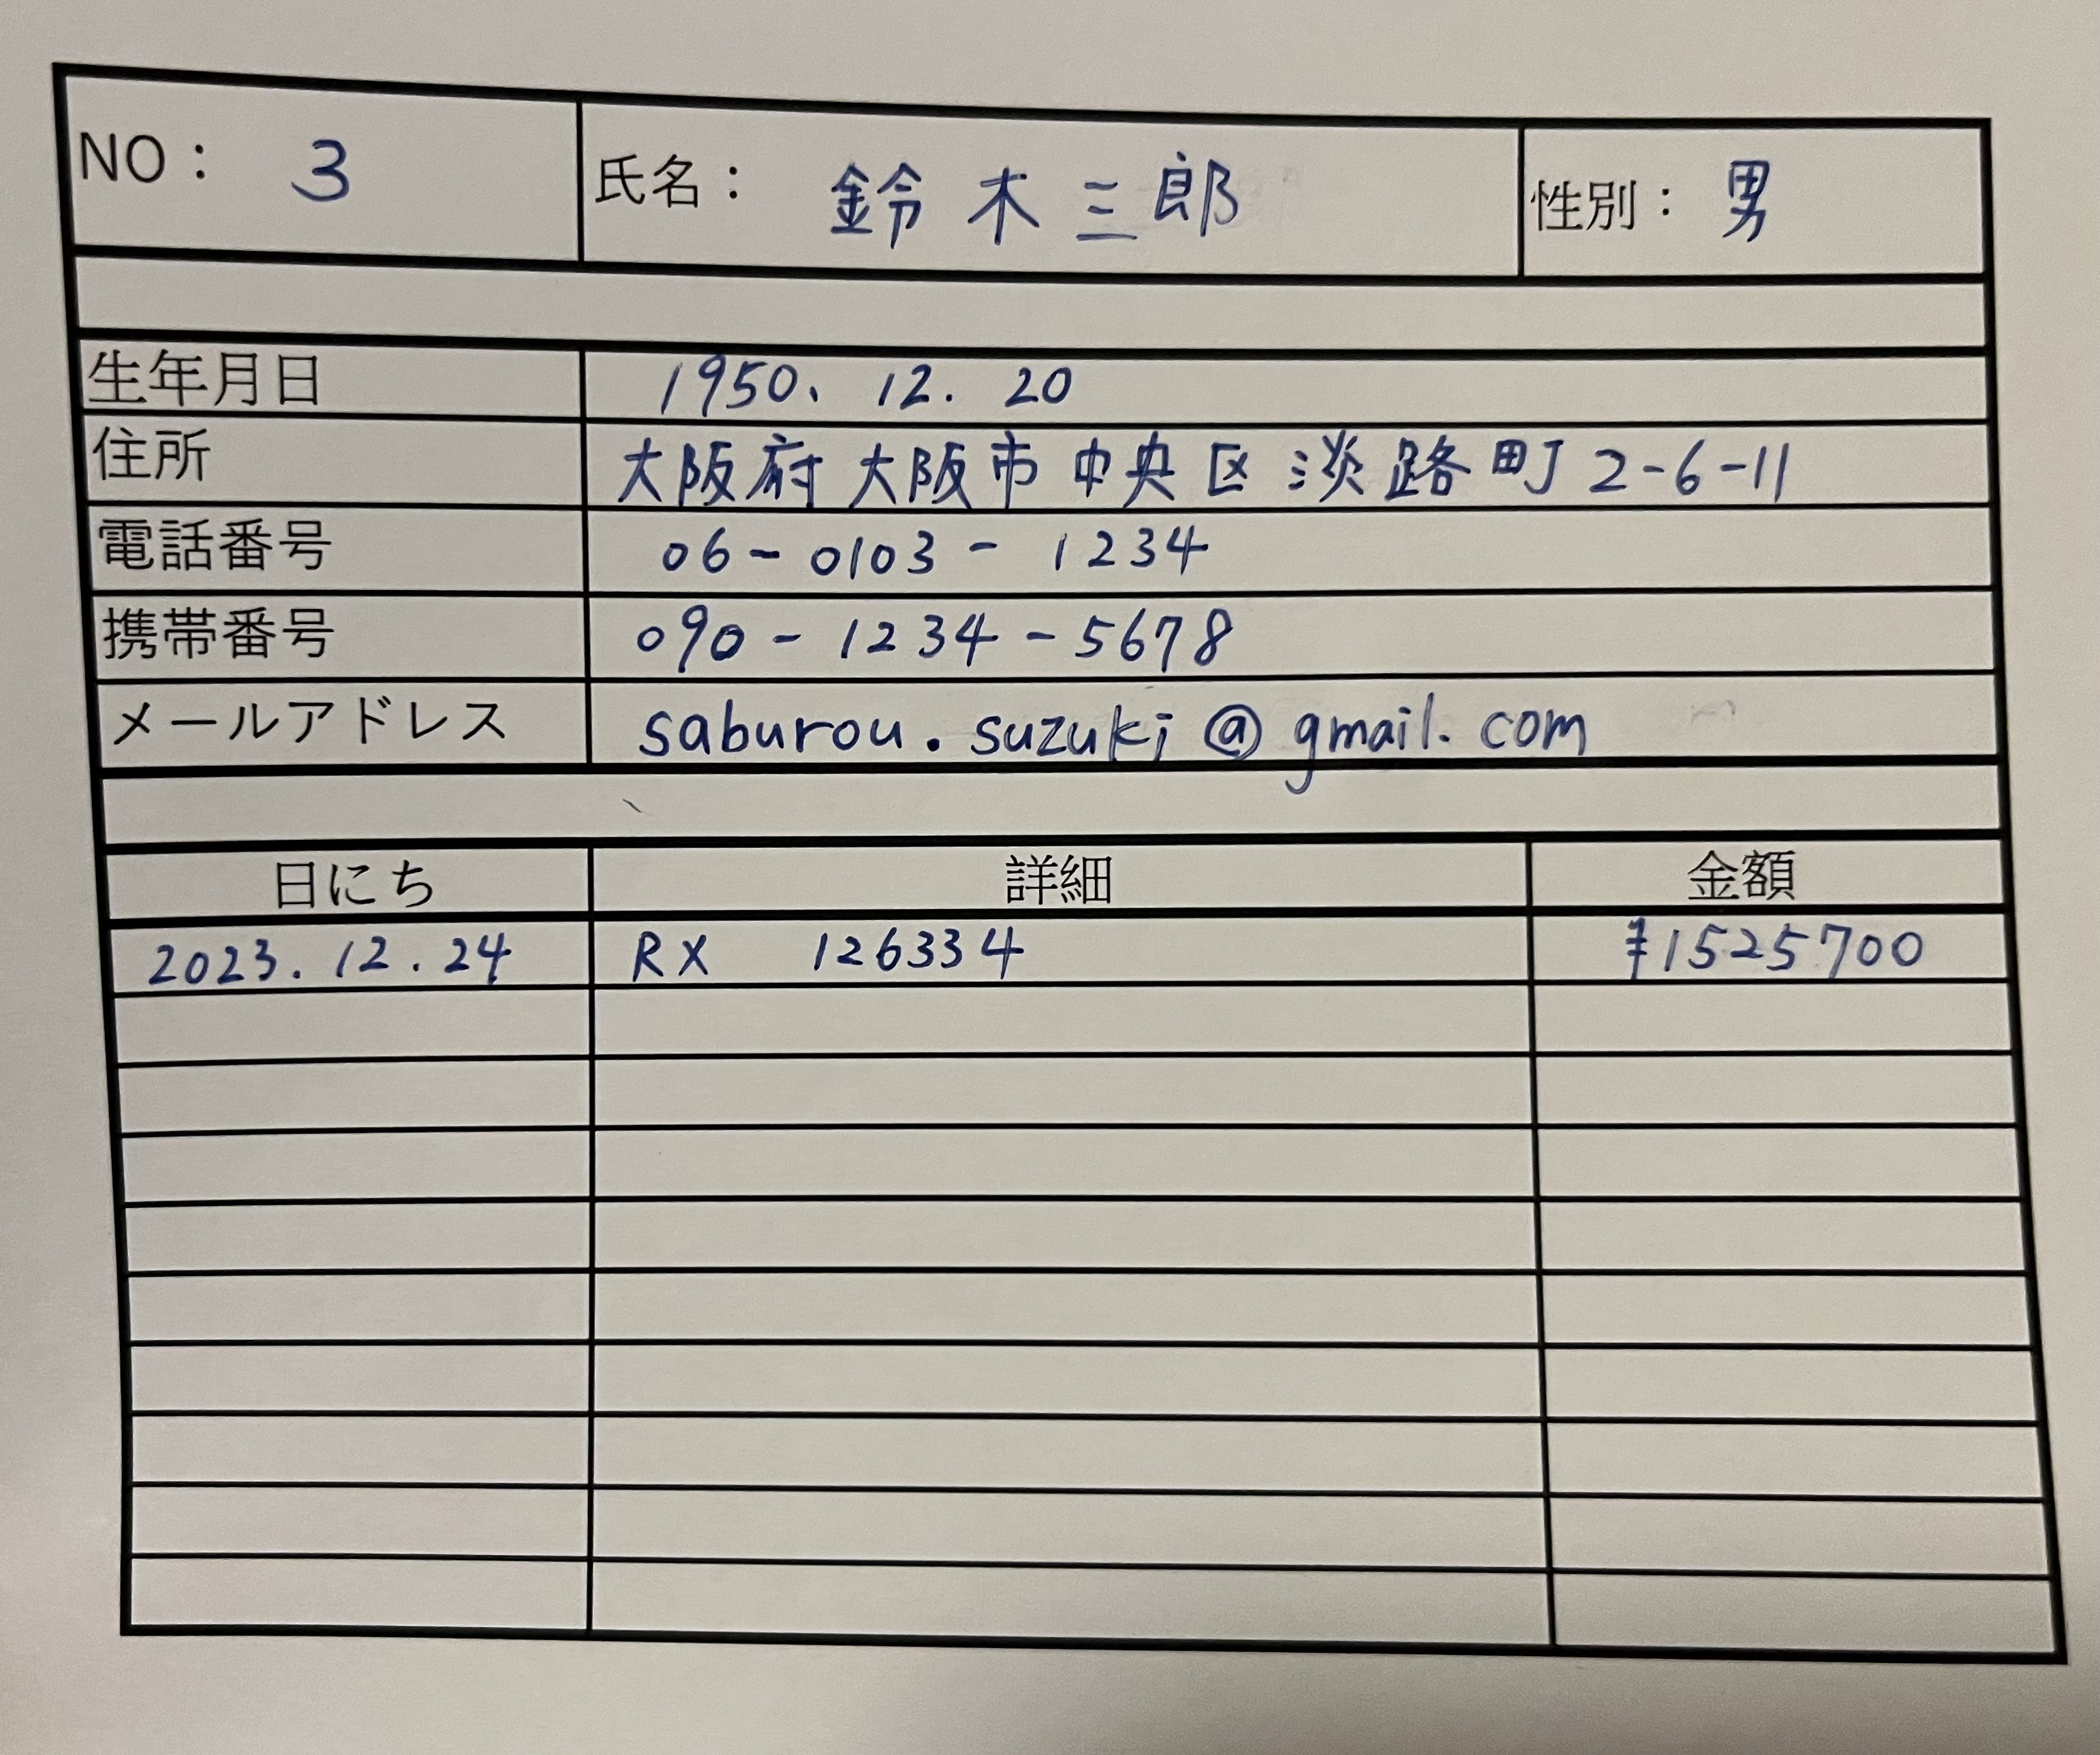 NO： 3 氏名： 鈴木三郎 性別： 男
生年月日 1950. 12. 20
住所 大阪府大阪市中央区淡路町2-6-11
電話番号 06-0103-1234
携帯番号 090-1234-5678
メールアドレス saburou.suzuki@gmail.com
日にち 詳細 金額
2023.12.24 RX 126334 ¥1525700